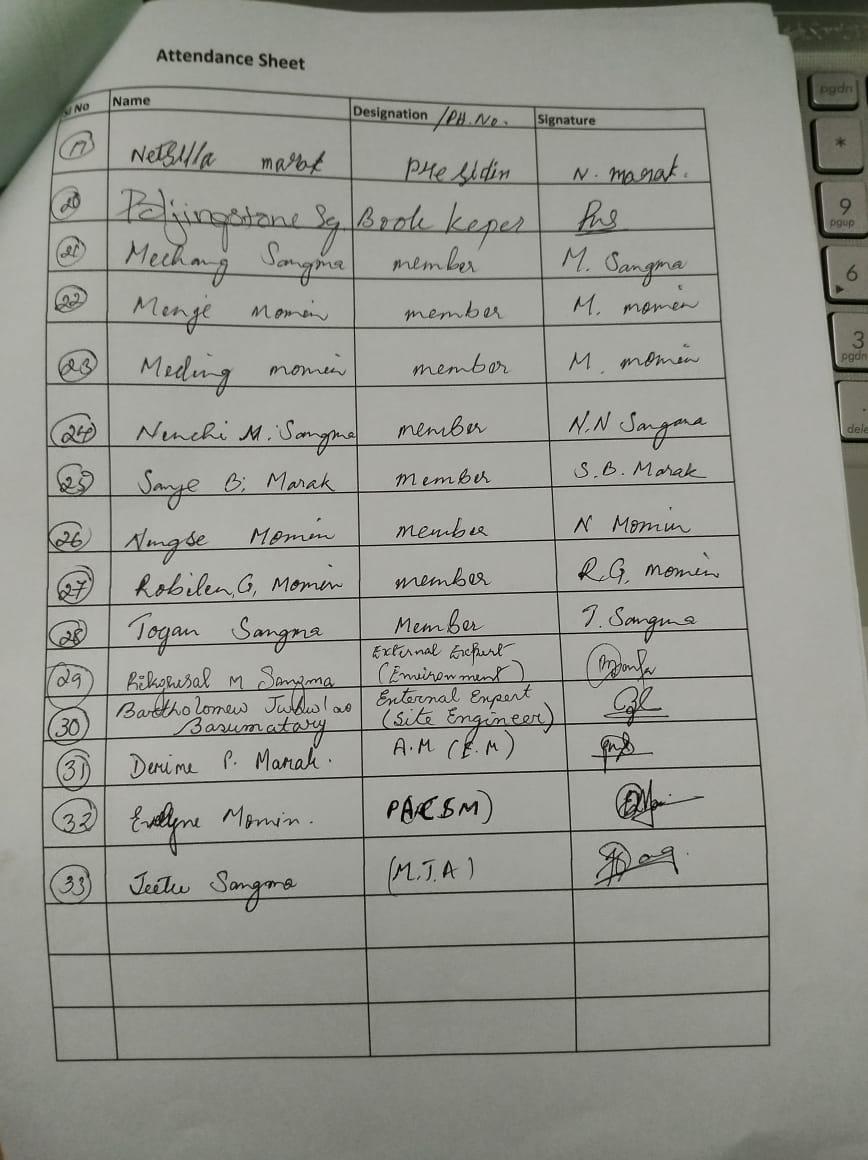 Attendance Sheet
Sl No Name Designation /PH.No. Signature
Netsilla marak president N. marak.
20 Poljingstone Sg. Book keper
21 Mechang Sangma member M. Sangma
22 Menge Momin member M. momin
23 Meding momin member M. momin
24 Nenchi M. Sangma member N.N Sangma
25 Sanje B. Marak member S.B. Marak
26 Ningse Momin member N Momin
27 Robilen, G, Momin member R.G, momin
28 Togan Sangma Member T. Sangma
External Expert
29 M Sangma (Environment)
Bartholomew External Expert
30 Basumatary (Site Engineer)
31 Denime P. Marak. A.M (F.M)
32 Evelyne Momin.
33 Jeetu Sangma (M.T.A)
pgdn
*
9
pgup
6
3
pgdn
.
dele